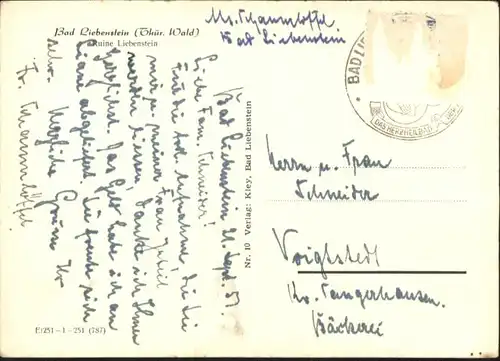 Bad Liebenstein (Thür. Wald)
Ruine Liebenstein
Bad Liebenstein
BAD LIE
DAS HERZHEILBAD
Bad Liebenstein, 21. Sept. 57
Liebe Fam. Schneider!
Für die frdl. Aufnahme, die Sie
mir u. meiner Frau
werden liessen, danke ich Ihnen
herzlichst. Das Geld habe ich an
abgeliefert. Sie freute sich
sehr. Herzliche Grüsse Ihr
Fr.
Nr. 10 Verlag: Kley, Bad Liebenstein
Herrn u. Frau
Schneider
Voigtstedt
Kr. Sangerhausen.
Bäckerei
E/251 - 1 - 251 (787)